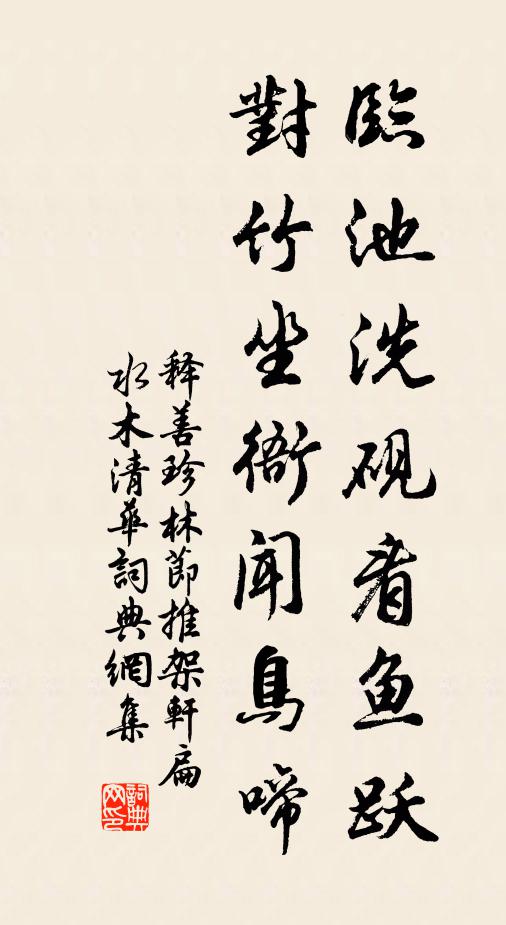 臨池洗硯看鱼跃
對竹坐衙闻鳥啼
释善珍林節推架軒扁
水木清華詞典網集
詞典网印